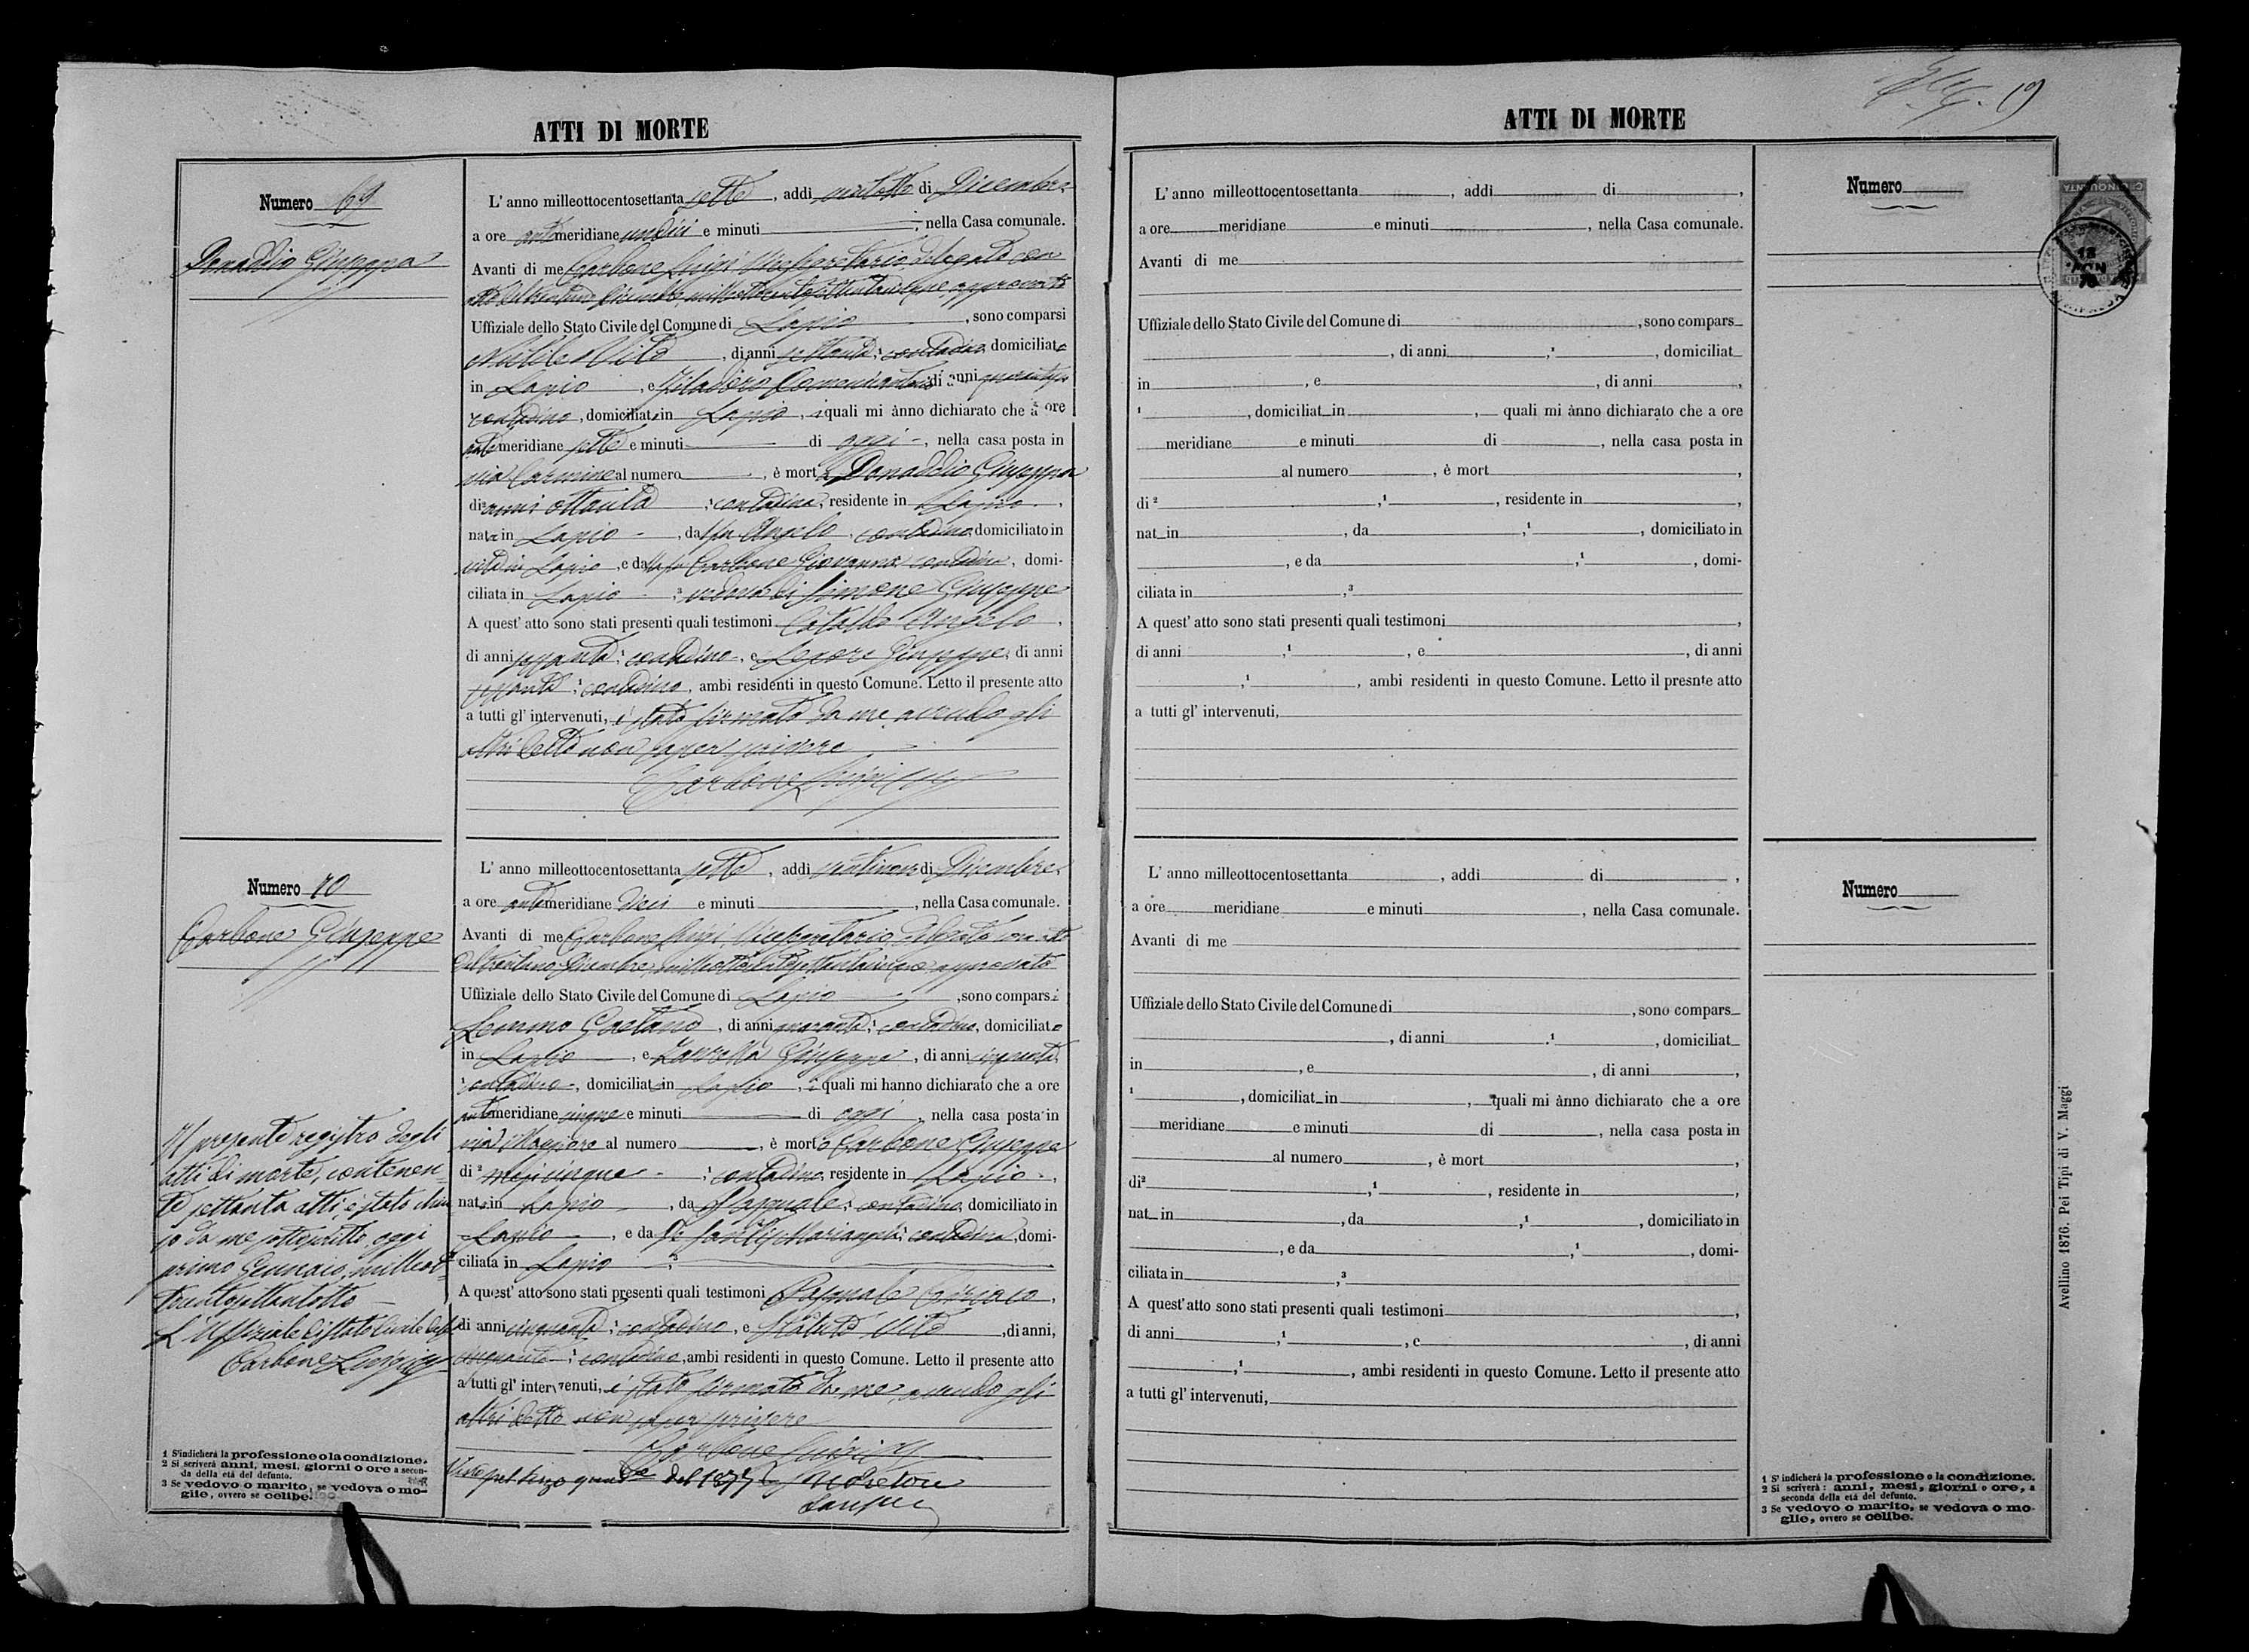 ATTI DI MORTE
Numero 69
Donaddio Giuseppa
L' anno milleottocentosettanta sette, addi ventotto di Dicembre
a ore antimeridiane undici e minuti , nella Casa comunale.
Avanti di me Carbone Luigi Vicesegretario delegato con
atto del trentuno Dicembre milleottocentosettantacinque approvato
Uffiziale dello Stato Civile del Comune di Lapio , sono comparsi
Vito , di anni settanta, contadino domiciliato
in Lapio , e di anni
contadino, domiciliato in Lapio , i quali mi ànno dichiarato che a ore
antimeridiane sette e minuti di oggi , nella casa posta in
via Carmine al numero , è morta Donaddio Giuseppa
di² anni ottanta , contadina, residente in Lapio ,
nata in Lapio , da fu Angelo , contadino, domiciliato in
vita in Lapio , e da fu Carbone Giovanna contadina, domi-
ciliata in Lapio ,³ vedova di Simone Giuseppe
A quest' atto sono stati presenti quali testimoni Cataldo Angelo ,
di anni sessanta, contadino, e Lepore Giuseppe, di anni
sessanta, contadino, ambi residenti in questo Comune. Letto il presente atto
a tutti gl' intervenuti, è stato firmato da me avendo gli
altri detto non saper scrivere
Carbone Luigi
Numero 70
Carbone Giuseppe
L' anno milleottocentosettanta sette, addi ventinove di Dicembre,
a ore antimeridiane dieci e minuti , nella Casa comunale.
Avanti di me Carbone Luigi Vicesegretario delegato con atto
del trentuno Dicembre milleottocentosettantacinque approvato
Uffiziale dello Stato Civile del Comune di Lapio , sono comparsi
Lemmo Gaetano , di anni quaranta, contadino, domiciliato
in Lapio , e Giuseppe , di anni cinquanta,
¹ contadino, domiciliato in Lapio , i quali mi hanno dichiarato che a ore
antimeridiane cinque e minuti di oggi , nella casa posta in
via Maggiore al numero , è morto Carbone Giuseppe
di² mesi cinque , contadino, residente in Lapio ,
nato in Lapio , da Pasquale, contadino, domiciliato in
Lapio , e da De Mariangela, contadina, domi-
ciliata in Lapio ,³
A quest' atto sono stati presenti quali testimoni Pasquale Ciriaco ,
di anni cinquanta, contadino, e Vito , di anni,
cinquanta, contadino, ambi residenti in questo Comune. Letto il presente atto
a tutti gl' intervenuti, è stato firmato da me avendo gli
altri detto non saper scrivere
Carbone Luigi
Visto del 1877
Il presente registro degli
atti di morte, contenen-
te settanta atti, è stato chiu
so da me sottoscritto oggi
primo Gennaio, milleot-
tocentosettantotto
L'Uffiziale di Stato Civile
Carbone Luigi
1 S'indicherà la professione o la condizione.
2 Si scriverà anni, mesi, giorni o ore a secon-
da della età del defunto.
3 Se vedovo o marito, se vedova o mo-
glie, ovvero se celibe.
ATTI DI MORTE
Numero
L' anno milleottocentosettanta , addi di ,
a ore meridiane e minuti , nella Casa comunale.
Avanti di me
Uffiziale dello Stato Civile del Comune di , sono compars
, di anni ,¹ , domiciliat
in , e , di anni ,
¹ , domiciliat in , quali mi ànno dichiarato che a ore
meridiane e minuti di , nella casa posta in
al numero , è mort ,
di ² ,¹ , residente in ,
nat in , da ,¹ , domiciliato in
, e da ,¹ , domi-
ciliata in ,³
A quest' atto sono stati presenti quali testimoni ,
di anni ,¹ , e , di anni
,¹ , ambi residenti in questo Comune. Letto il presnte atto
a tutti gl' intervenuti,
Numero
L' anno milleottocentosettanta , addi di ,
a ore meridiane e minuti , nella Casa comunale.
Avanti di me
Uffiziale dello Stato Civile del Comune di , sono compars
, di anni .¹ , domiciliat
in , e , di anni ,
¹ , domiciliat in , quali mi ànno dichiarato che a ore
meridiane e minuti di , nella casa posta in
al numero , è mort ,
di² ,¹ , residente in ,
nat in , da ,¹ , domiciliato in
, e da ,¹ , domi-
ciliata in ,³
A quest' atto sono stati presenti quali testimoni ,
di anni ,¹ , e , di anni
,¹ , ambi residenti in questo Comune. Letto il presente atto
a tutti gl' intervenuti,
1 S' indicherà la professione o la condizione.
2 Si scriverà: anni, mesi, giorni o ore, a
seconda della età del defunto.
3 Se vedovo o marito, se vedova o mo-
glie, ovvero se celibe.
Avellino 1876. Pei Tipi di V. Maggi
Cᵐⁱ CINQUANTA